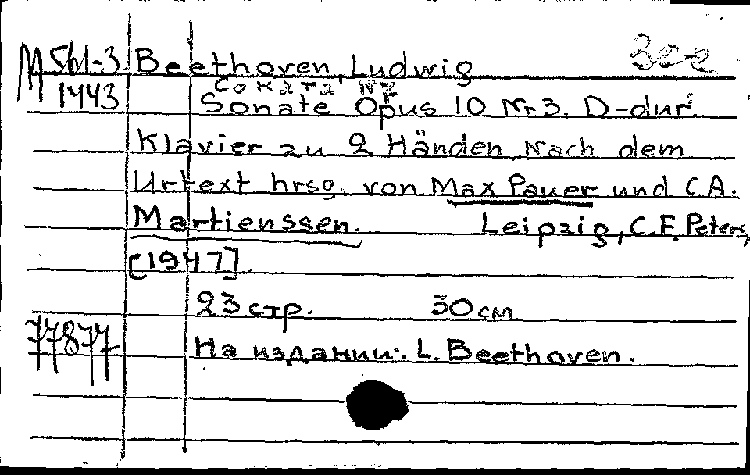 М 561-3 Beethoven, Ludwig
1443 Соната №7
Sonate Opus 10 Nr 3. D-dur.
Klavier zu 2 Händen. Nach dem
Urtext hrsg. von Max Pauer und C.A.
Martienssen. Leipzig, C.F. Peters,
[1947].
23 стр. 30 см
77877 На издании: L. Beethoven.